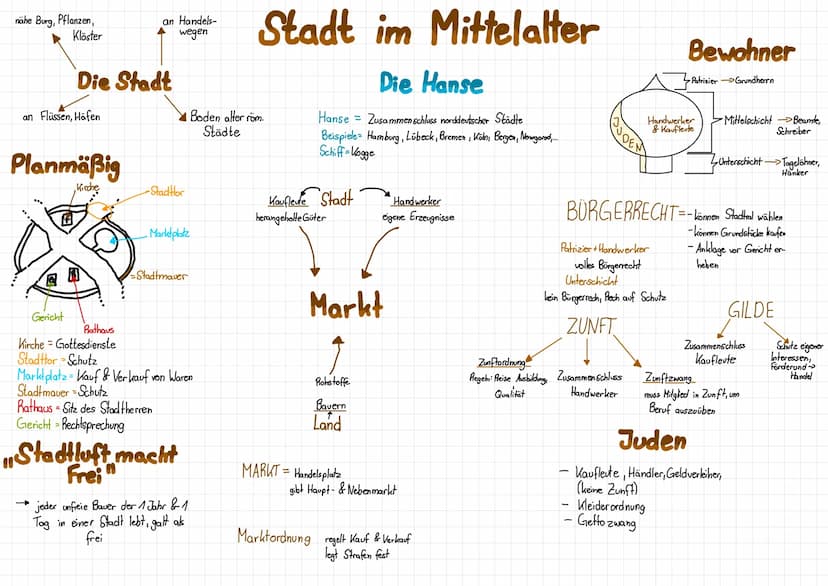 Stadt im Mittelalter
nähe Burg, Pflanzen,
Klöster
an Handels-
wegen
Die Stadt
an Flüssen, Häfen
Boden alter röm.
Städte
Die Hanse
Hanse = Zusammenschluss norddeutscher Städte
Beispiele = Hamburg, Lübeck, Bremen, Köln, Bergen, Nowgorod,...
Schiff = Kogge
Bewohner
Patrizier → Grundherrn
JUDEN
Handwerker
& Kaufleute
Mittelschicht → Beamte,
Schreiber
Unterschicht → Tagelöhner,
Hänker
Planmäßig
Kirche
Stadttor
Marktplatz
= Stadtmauer
Gericht
Rathaus
Kirche = Gottesdienste
Stadttor = Schutz
Marktplatz = Kauf & Verkauf von Waren
Stadtmauer = Schutz
Rathaus = Sitz des Stadtherren
Gericht = Rechtsprechung
„Stadtluft macht
Frei"
→ jeder unfreie Bauer der 1 Jahr & 1
Tag in einer Stadt lebt, galt als
frei
Kaufleute Stadt Handwerker
herangeholte Güter
eigene Erzeugnisse
Markt
Rohstoffe
Bauern
Land
MARKT = Handelsplatz
gibt Haupt- & Nebenmarkt
Marktordnung regelt Kauf & Verkauf
legt Strafen fest
BÜRGERRECHT = - können Stadtrat wählen
- können Grundstücke kaufen
- Anklage vor Gericht er-
heben
Patrizier + Handwerker
volles Bürgerrecht
Unterschicht
kein Bürgerrech, Rech auf Schutz
ZUNFT
Zunftordnung
Regeln: Preise Ausbildung,
Qualität
Zusammenschluss
Handwerker
Zunftzwang
muss Mitglied in Zunft, um
Beruf auszuüben
GILDE
Zusammenschluss
Kaufleute
Schutz eigener
Interessen,
Förderung →
Handel
Juden
- Kaufleute, Händler, Geldverleiher,
(keine Zunft)
- Kleiderordnung
- Gettozwang